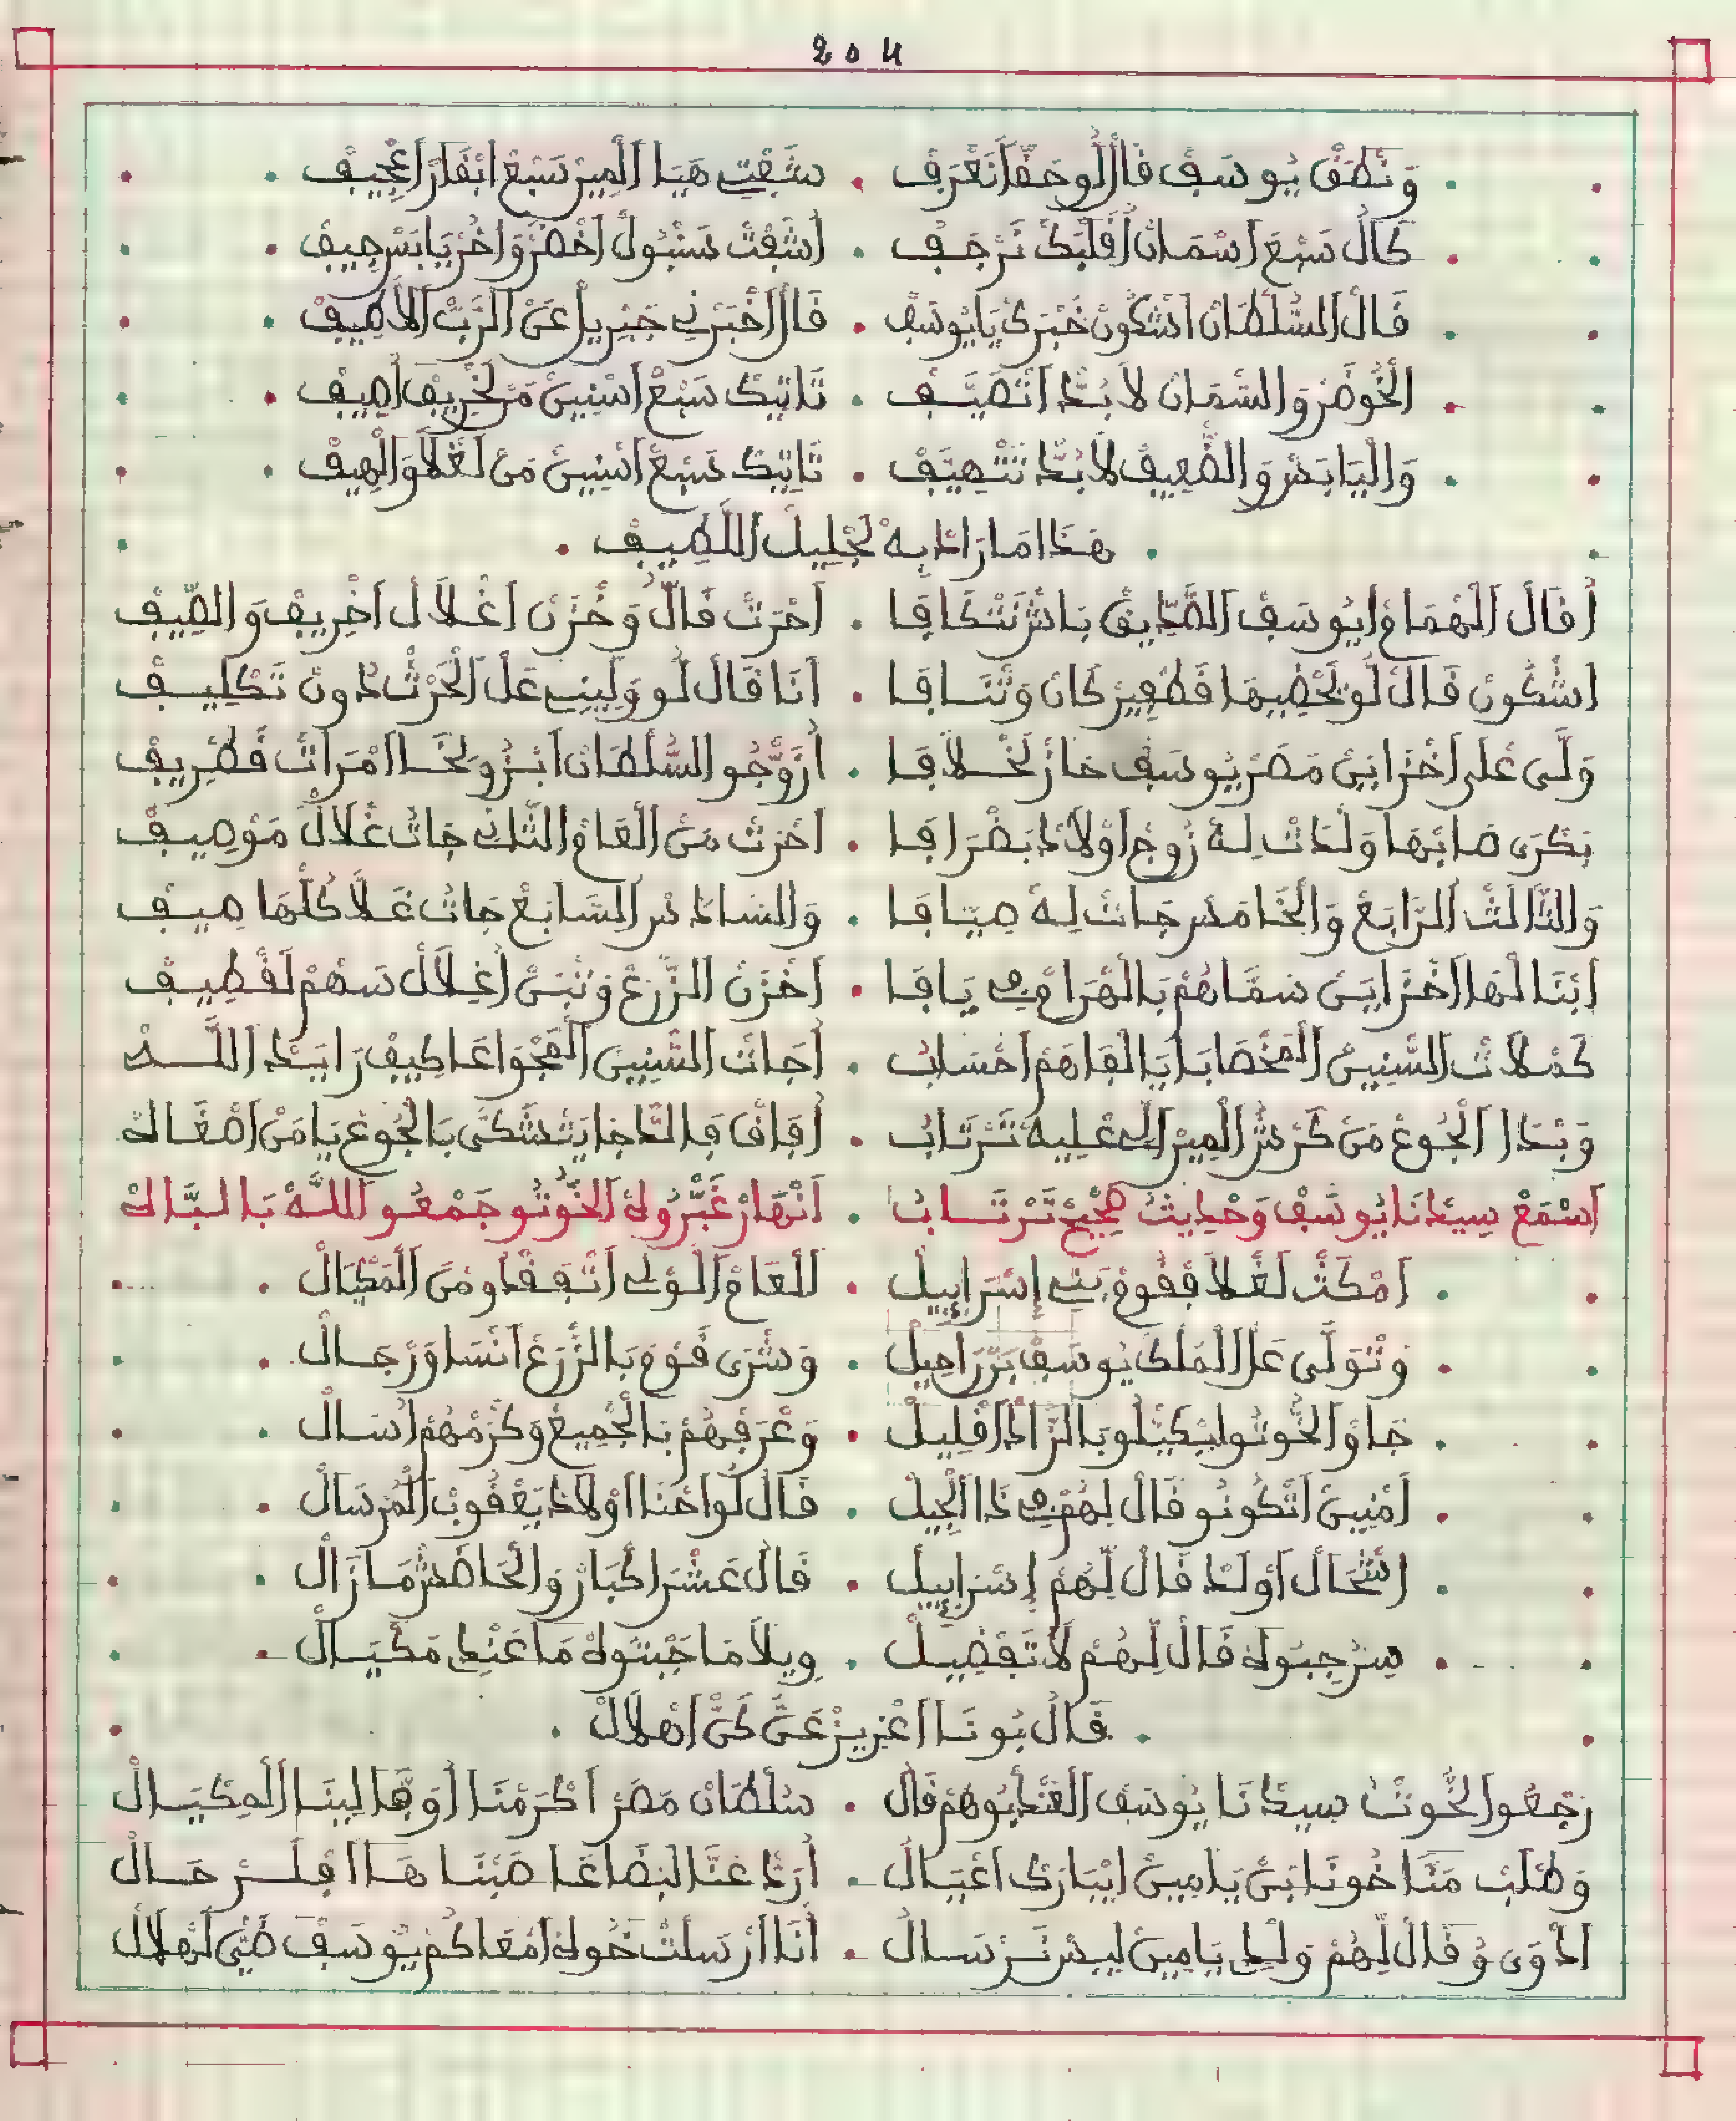 204
وَنْطَقْ يُوسَفْ قَالْ لُو حَقًّا نَعْرَفْ . شَفْتِ هَيَا الَمِيرْ سَبْعْ ابْقَارْ اعْجِيفْ
كَالْ سَبْعَ اسْمَانْ أُقَلْبَكْ نَرْجَفْ . أُشَفْتْ سَنْبُولْ اخْضَرْ وَاخُرْ يَابَسْ حِيفْ
قَالْ السُّلْطَانْ اشْكُونْ خَبْرَكْ يَا يُوسَفْ . قَالْ اخْبَرْنِي جَبْرِيلْ عَنْ الرَّبْ اللَّطِيفْ
الْخُوضَرْ وَالسَّمَانْ لَا بُدَّ اتْصَيَّفْ . تَاتِيكْ سَبْعْ اسْنِينْ مَنْ لَخْرِيفْ اصِيفْ
وَالْيَابَسْ وَالضَّعِيفْ لَا بُدَّ تَتْهِيَّفْ . تَاتِيكْ سَبْعْ اسْنِينْ مَنْ لَغْلَا وَالْهِيفْ
هَذَا مَا رَادْ بِهْ لَجْلِيلْ اللَّطِيفْ
أُقَالْ الْهُمَامْ ايُوسَفْ الصَّدِّيقْ بَاشْ نَتْكَافَا . احْرَثْ قَالْ وَخْزَنْ اغْلَالْ اخْرِيفْ وَالصِّيفْ
اشْكُونْ قَالْ لُو يَحْضِيهَا قَطْفِيرْ كَانْ وَتْنَافَا . أَنَا قَالْ لُو وَلِّينِي عَلْ الْحَرْثْ دُونْ تَكْلِيفْ
وَلَّى عْلَى اخْزَايِنْ مَصْرْ يُوسَفْ حَازْ لَخْلَافَا . أُزَوّْجُو السُّلْطَانْ ابْزُولِيخَا امْرَاتْ قَطْرِيفْ
بَكْرَى صَابْهَا وَلْدَاتْ لِهْ زُوجْ اوْلَادْ بَضْرَافَا . احْرَثْ مَنْ الْعَامْ الثَّانِي جَاتْ غْلَالْ مَوْصِيفْ
وَالثَّالَثْ الرَّابَعْ وَالْخَامَسْ جَاتْ لِهْ صِيَافَا . وَالسَّادَسْ السَّابَعْ جَاتْ غَلَّا كُلّْهَا صِيفْ
ابْنَا لْهَا اخْزَايَنْ سَمَّاهُمْ بَالْهَرَامْ فِي يَافَا . اخْزَنْ الزّْرَعْ وْتْبَنْ اغْلَالْ سَهْمْ لَقْطِيفْ
كَمْلَاتْ السّْنِينْ الْمَخْصَابَا يَا الْفَاهَمْ احْسَابْ . أُجَاتْ السّْنِينْ الْفَجْوَاعَا كِيفْ رَايَدْ اللَّهْ
وَبْدَا الْجُوعْ مَنْ كَرْشْ الْمِيرْ الِي عْلِيهْ تَرْتَابْ . أُفَاقْ فَالدَّاجَا يَتْشَكَّى بَالْجُوعْ يَا مَنْ اصْغَا لَهْ
اسْمَعْ سِيدْنَا يُوسَفْ وَحْدِيثُ هِيجْ تَرْتَابْ . انْهَارْ غَبّْرُوهْ الْخُّوتُو جَمْعُو اللَّهْ بَالْبَالَهْ
امْكَثْ لَغْلَا فْقُومْ بَنِي إِسْرَايِيلْ . الْعَامْ الْوْلِي اتْفَقْدُو مَنْ الْمَكْيَالْ
وْتْوَلَّى عَالْمَلْكْ يُوسَفْ بَنْ رَاحِيلْ . وَشْرَى قَوْمْ بَالزّْرَعْ انْسَا وَرْجَالْ
جَاوْ الْخُّوتُو لِيكِيّْلُو بَالزَّادْ اقْلِيلْ . وَعْرَفْهُمْ بَالْجْمِيعْ وَكْرَمْهُمْ اسَالْ
امْنِينْ اتْكُونُو قَالْ لِهُمْ فِي ذَا الْجِيلْ . قَالُ لُو احْنَا اوْلَادْ يَعْقُوبْ الْمُرْسَالْ
اشْحَالْ اوْلَدْ قَالْ لّْهُمْ إِسْرَايِيلْ . قَالُ عَشْرَا كْبَارْ وَالْحَاضَشْ مَازَالْ
سِيرْ جِبُوهْ قَالْ لِهُمْ لَا تَفْضِيلْ . وِيلَا مَا جِبْتُوهْ مَا عَنْدِي مَكْيَالْ
قَالُ بُونَا اعْزِيزْ عَنَّ كَنّْ اهْلَالْ
رَجْعُو الْخُّوتْ سِيدْنَا يُوسَفْ الْعَنْدْ بُوهُمْ قَالُ . سُلْطَانْ مَصْرْ اكْرَمْنَا أُوَفَّا لِينَا الْمِكْيَالْ
وَطْلَبْ مَنَّا خُونَا بَنْ يَامِينْ ايْبَارَكْ اعْيَالْ . أُرَدّْ عَنَّا الْبْضَاعَا صَبْنَاهَا افْلَسْرْ حَالْ
ادْوَى وُ قَالْ لِهُمْ وَلْدِي يَامِينْ لِيسْ نَرْسَالْ . أَنَا ارْسَلْتْ خُوهْ امْعَاكُمْ يُوسَفْ ضَنِّي لَهْلَالْ